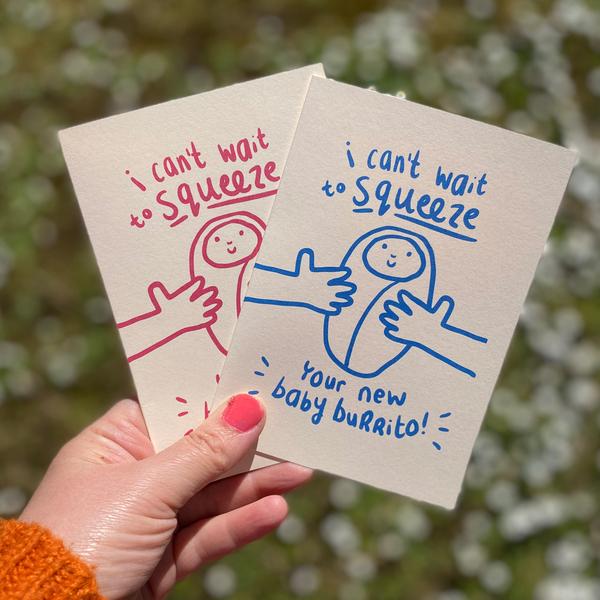 i can't wait
to squeeze
i can't wait
to squeeze
your new
baby buRRito!